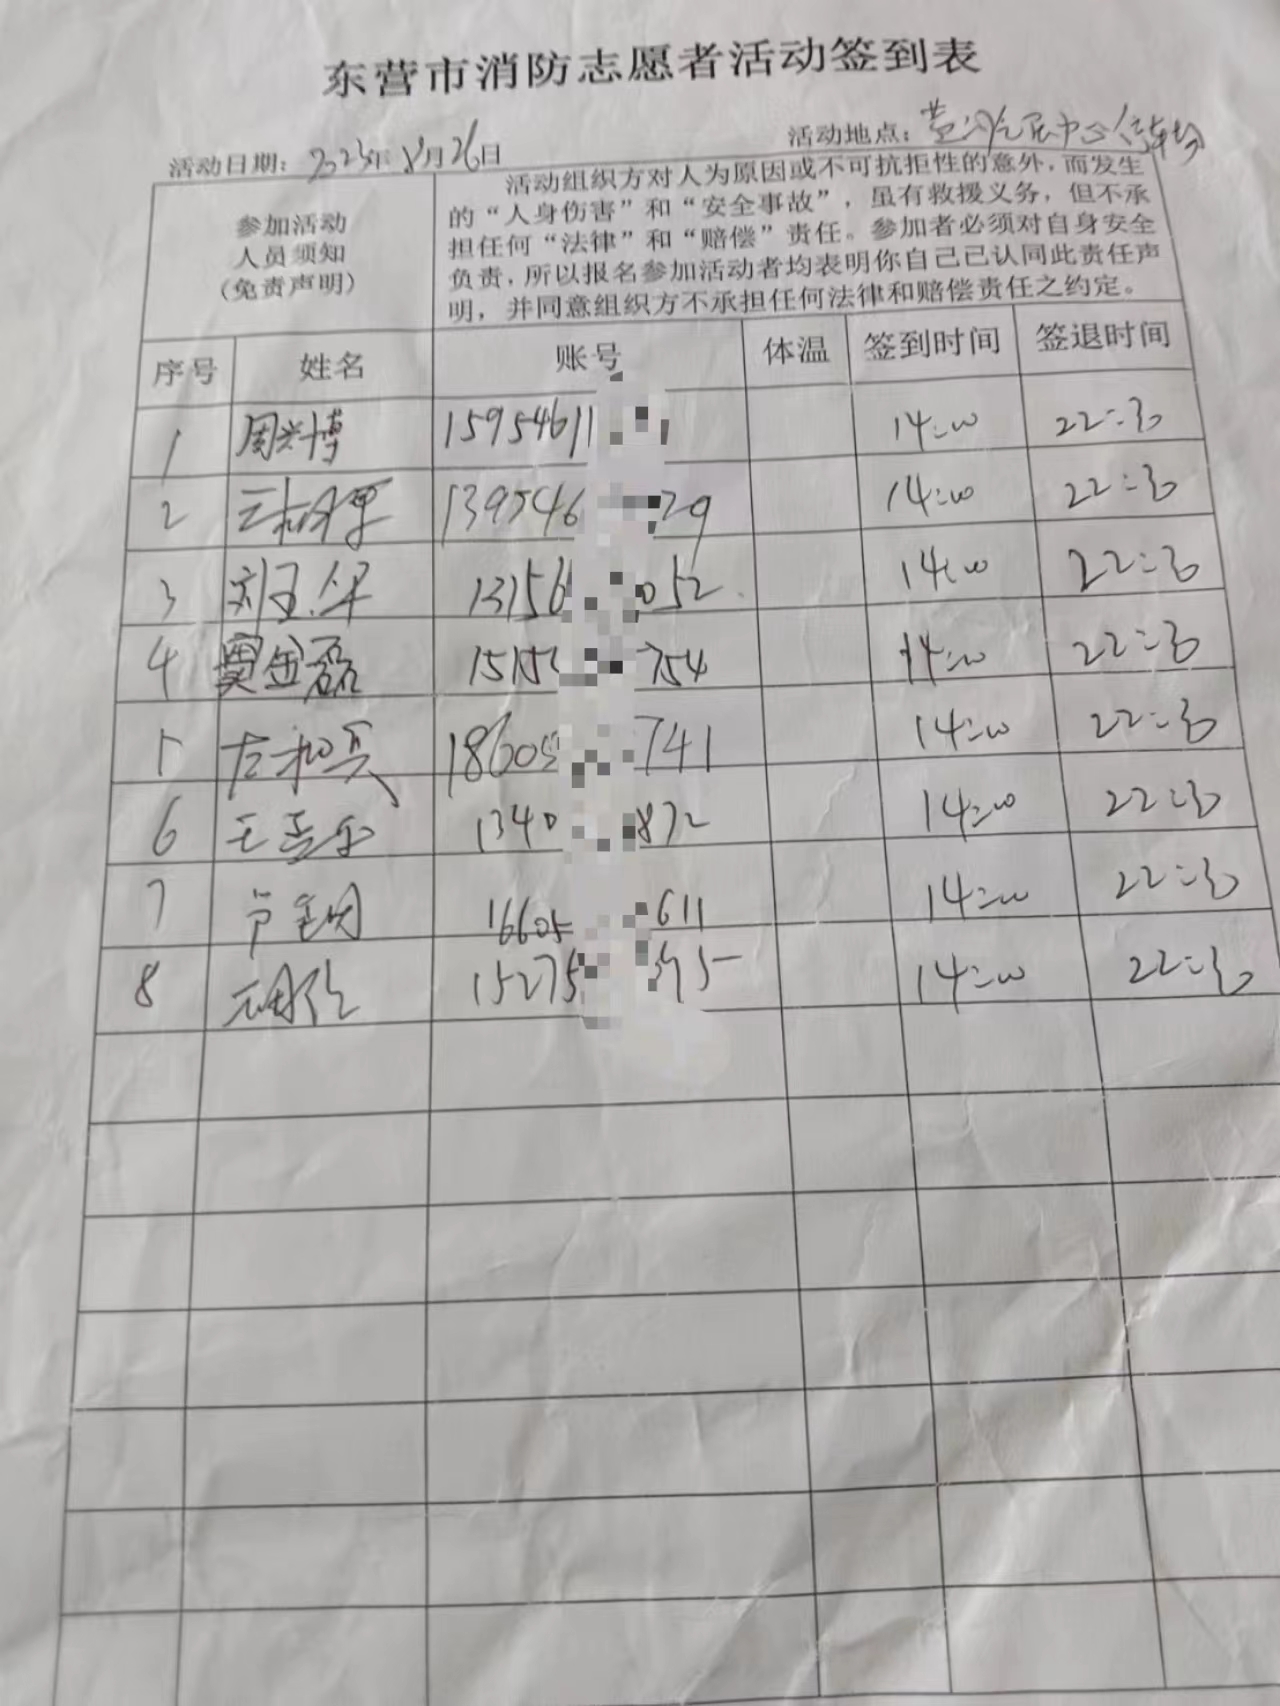 东营市消防志愿者活动签到表
活动日期：2023年8月26日 活动地点：黄河 中心停车场
参加活动
人员须知
（免责声明）
活动组织方对人为原因或不可抗拒性的意外，而发生
的“人身伤害”和“安全事故”，虽有救援义务，但不承
担任何“法律”和“赔偿”责任。参加者必须对自身安全
负责，所以报名参加活动者均表明你自己已认同此责任声
明，并同意组织方不承担任何法律和赔偿责任之约定。
序号 姓名 账号 体温 签到时间 签退时间
1 周兴博 15954611 14:00 22:30
2 139546 29 14:00 22:30
3 刘玉华 13156 052 14:00 22:30
4 窦金磊 1515 754 14:00 22:30
5 左和兵 18605 741 14:00 22:30
6 王 1340 872 14:00 22:30
7 16605 611 14:00 22:30
8 15275 395 14:00 22:30